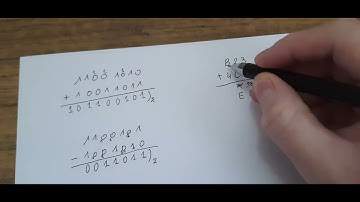 11001010
+ 10011011
101100101)2
1100101
- 1001010
0011011)2
+ 4
E